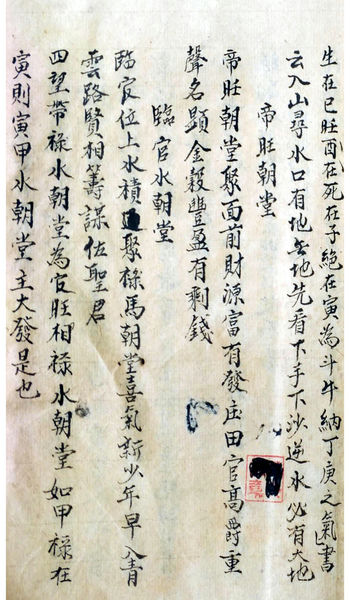 生在巳旺酉在死在子絕在寅為斗牛納丁庚之氣書
云入山尋水口有地無地先看下手下沙逆水必有大地
帝旺朝堂
帝旺朝堂聚面前財源富有發庄田官高爵重
聲名顯金穀豐盈有剩錢
臨官水朝堂
臨官位上水積聚祿馬朝堂喜氣新少年早入青
雲路賢相籌謀佐聖君
四望帶祿水朝堂為官旺相祿水朝堂如甲祿在
寅則寅甲水朝堂主大發是也